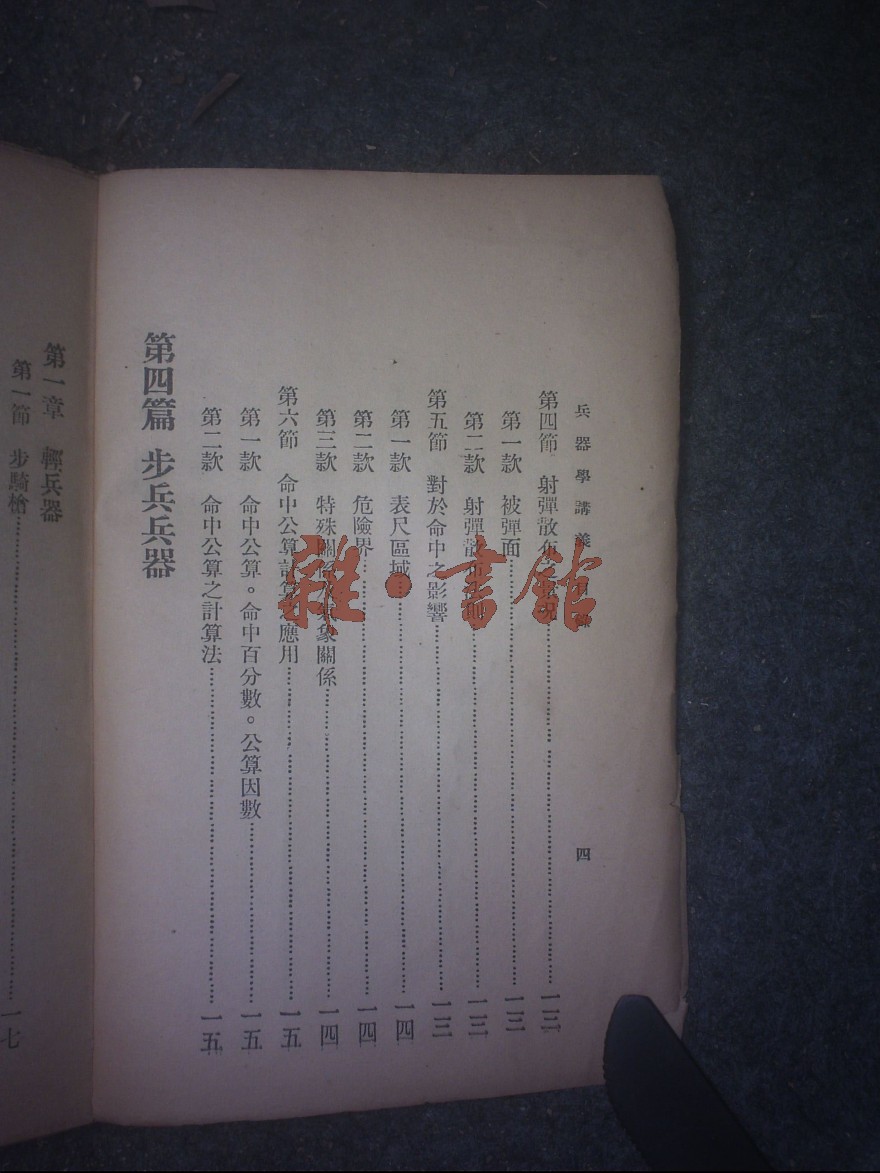 兵器學講義
四
第四節 射彈散布之 一三
第一款 被彈面 一三
第二款 射彈散布 一三
第五節 對於命中之影響 一三
第一款 表尺區域 一四
第二款 危險界 一四
第三款 特殊關係 氣象關係 一四
第六節 命中公算 應用 一五
第一款 命中公算。命中百分數。公算因數 一五
第二款 命中公算之計算法 一五
第四篇 步兵兵器
第一章 輕兵器
第一節 步騎槍 一七
雜·書館